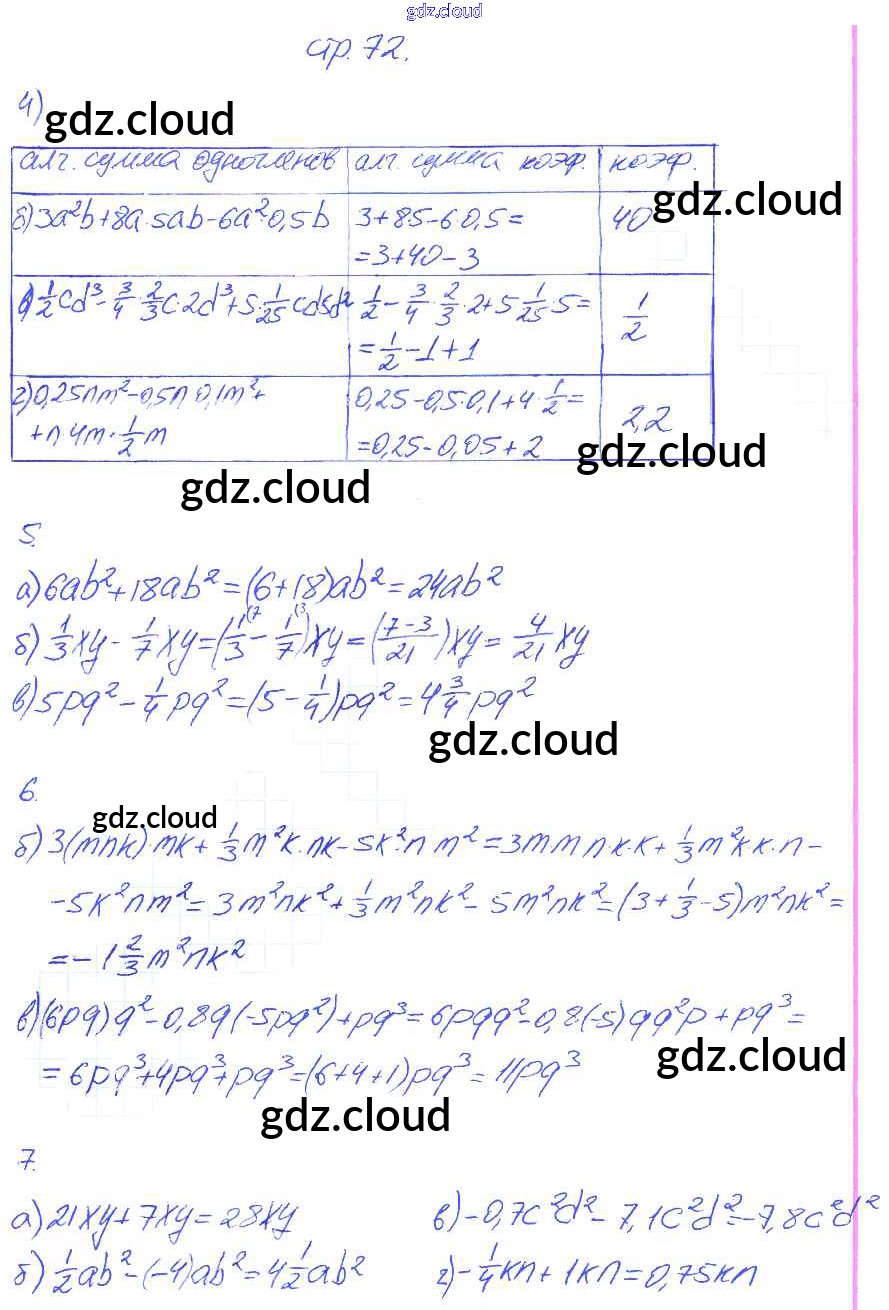 gdz.cloud
стр. 72.
4)
gdz.cloud
алг. сумма одночленов | алг. сумма коэф. | коэф.
gdz.cloud
б) 3a²b+8a·5ab-6a²·0,5b | 3+8·5-6·0,5= | 40
=3+40-3
в) 1/2cd³-3/4·2/3c·2d³+5·1/25cd5d² | 1/2-3/4·2/3·2+5·1/25·5= | 1/2
=1/2-1+1
г) 0,25nm²-0,5n·0,1m²+ | 0,25-0,5·0,1+4·1/2= | 2,2
+n·4m·1/2m | =0,25-0,05+2
gdz.cloud
gdz.cloud
5.
а) 6ab²+18ab²=(6+18)ab²=24ab²
б) 1/3xy-1/7xy=(1/3(7-1/7(3)xy=(7-3/21)xy=4/21xy
в) 5pq²-1/4pq²=(5-1/4)pq²=4 3/4pq²
gdz.cloud
6.
gdz.cloud
б) 3(mnk)·mk+1/3m²k·nk-5k²·n m²=3mm n·k·k+1/3m²kk·n-
-5k²nm²=3m²nk²+1/3m²nk²-5m²nk²=(3+1/3-5)m²nk²=
=-1 2/3m²nk²
в) (6pq)q²-0,8q(-5pq²)+pq³=6pqq²-0,8(-5)qq²p+pq³=
=6pq³+4pq³+pq³=(6+4+1)pq³=11pq³
gdz.cloud
gdz.cloud
7.
а) 21xy+7xy=28xy
в) -0,7c²d²-7,1c²d²=-7,8c²d²
б) 1/2ab²-(-4)ab²=4 1/2ab²
г) -1/4kn+1kn=0,75kn